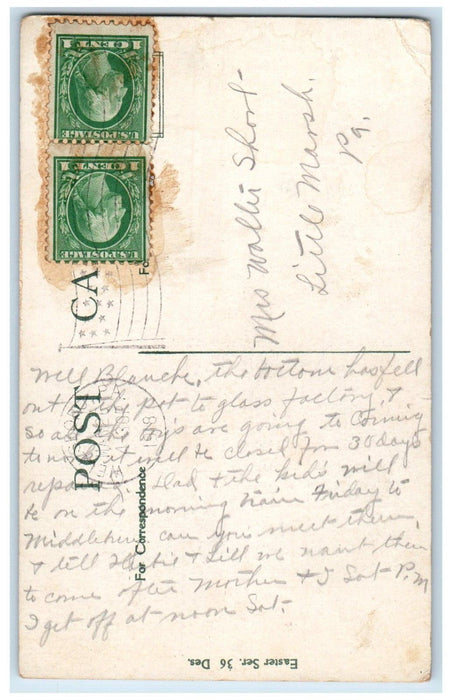 1 CENT 1
U.S. POSTAGE
1 CENT 1
U.S. POSTAGE
POST CA
For Correspondence
Fo
Mrs Walter Short
Little Marsh,
Pa.
Well Blanche, the bottom has fell
out of the pot to glass factory, &
so all the boys are going to coming
it will be closed for 30 days
repairs. Dad & the kids will
be on the morning train Friday to
Middlebury can you meet them
& tell & Lill we want them
to come after Mother & I Sat P.M
I get off at noon Sat.
Easter Ser. 36 Des.